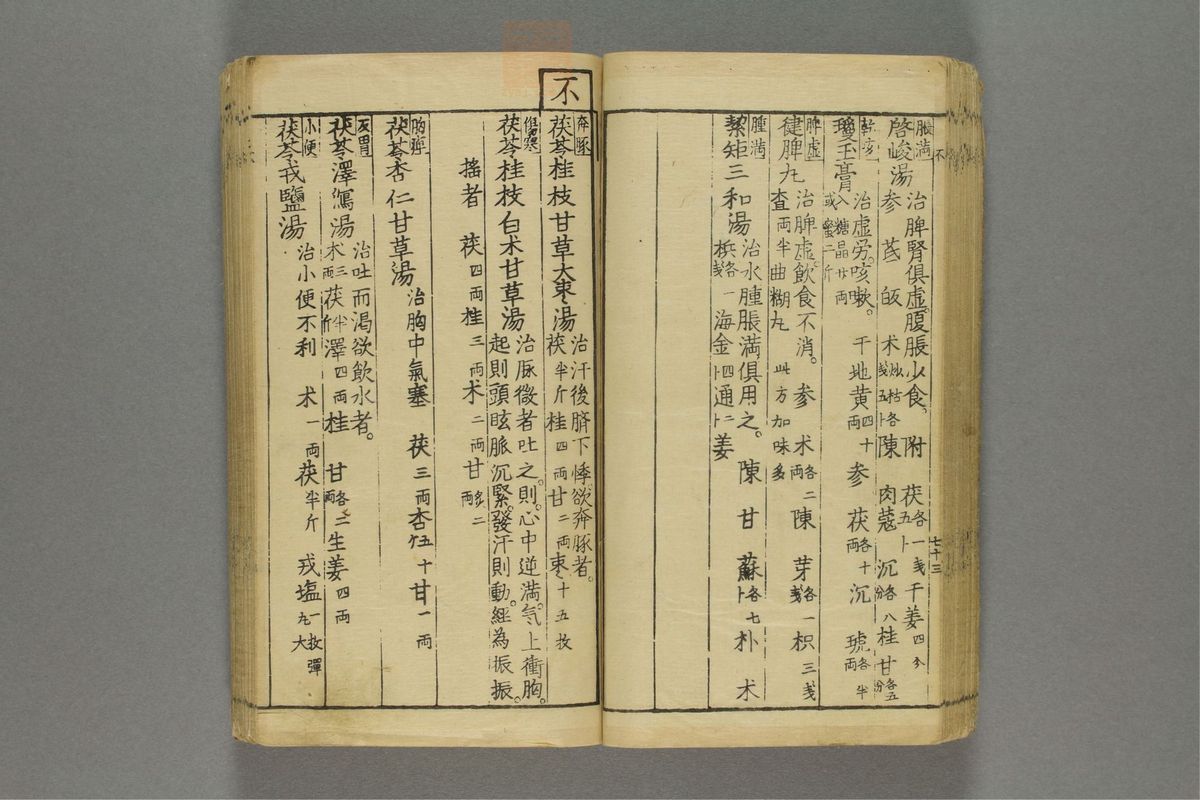 不
七十三
脹満
啓峻湯
治脾腎倶虚。腹脹少食。附 茯各一戔五卜 干姜四分
参 芪 皈 术戔五卜 陳 肉蔻 沉各八分 桂 甘各五分
乾咳
瓊玉膏
治虚労。咳嗽。干地黄四十両 参 茯各十両 沉 琥各半両
入糖晶廿両或蜜二斤
脾虚
健脾丸
治脾虚飲食不消。参 术各二両 陳 芽各一戔 枳三戔
査両半 曲糊丸 此方加味多
腫満
䋈矩三和湯
治水腫脹満倶用之。陳 甘 蘇各七卜 朴 术
梹各一戔 海金四卜 通二卜 姜
不
奔豚
茯苓桂枝甘草大枣湯
治汗後臍下悸。欲奔豚者。
茯半斤 桂四両 甘二両 枣十五枚
傷寒
茯苓桂枝白术甘草湯
治脈微者吐之。則。心中逆満。気上衝胸。
起則頭眩脈沉緊。發汗則動。経為振振。
揺者 茯四両 桂三両 术二両 甘炙二両
胸痺
茯苓杏仁甘草湯
治胸中氣塞 茯三両 杏五十 甘一両
反胃
茯苓澤瀉湯
治吐而渇欲飲水者。
术三両 茯半斤 澤四両 桂 甘各二両 生姜四両
小便
茯苓戎鹽湯
治小便不利 术一両 茯半斤 戎塩一枚彈丸大